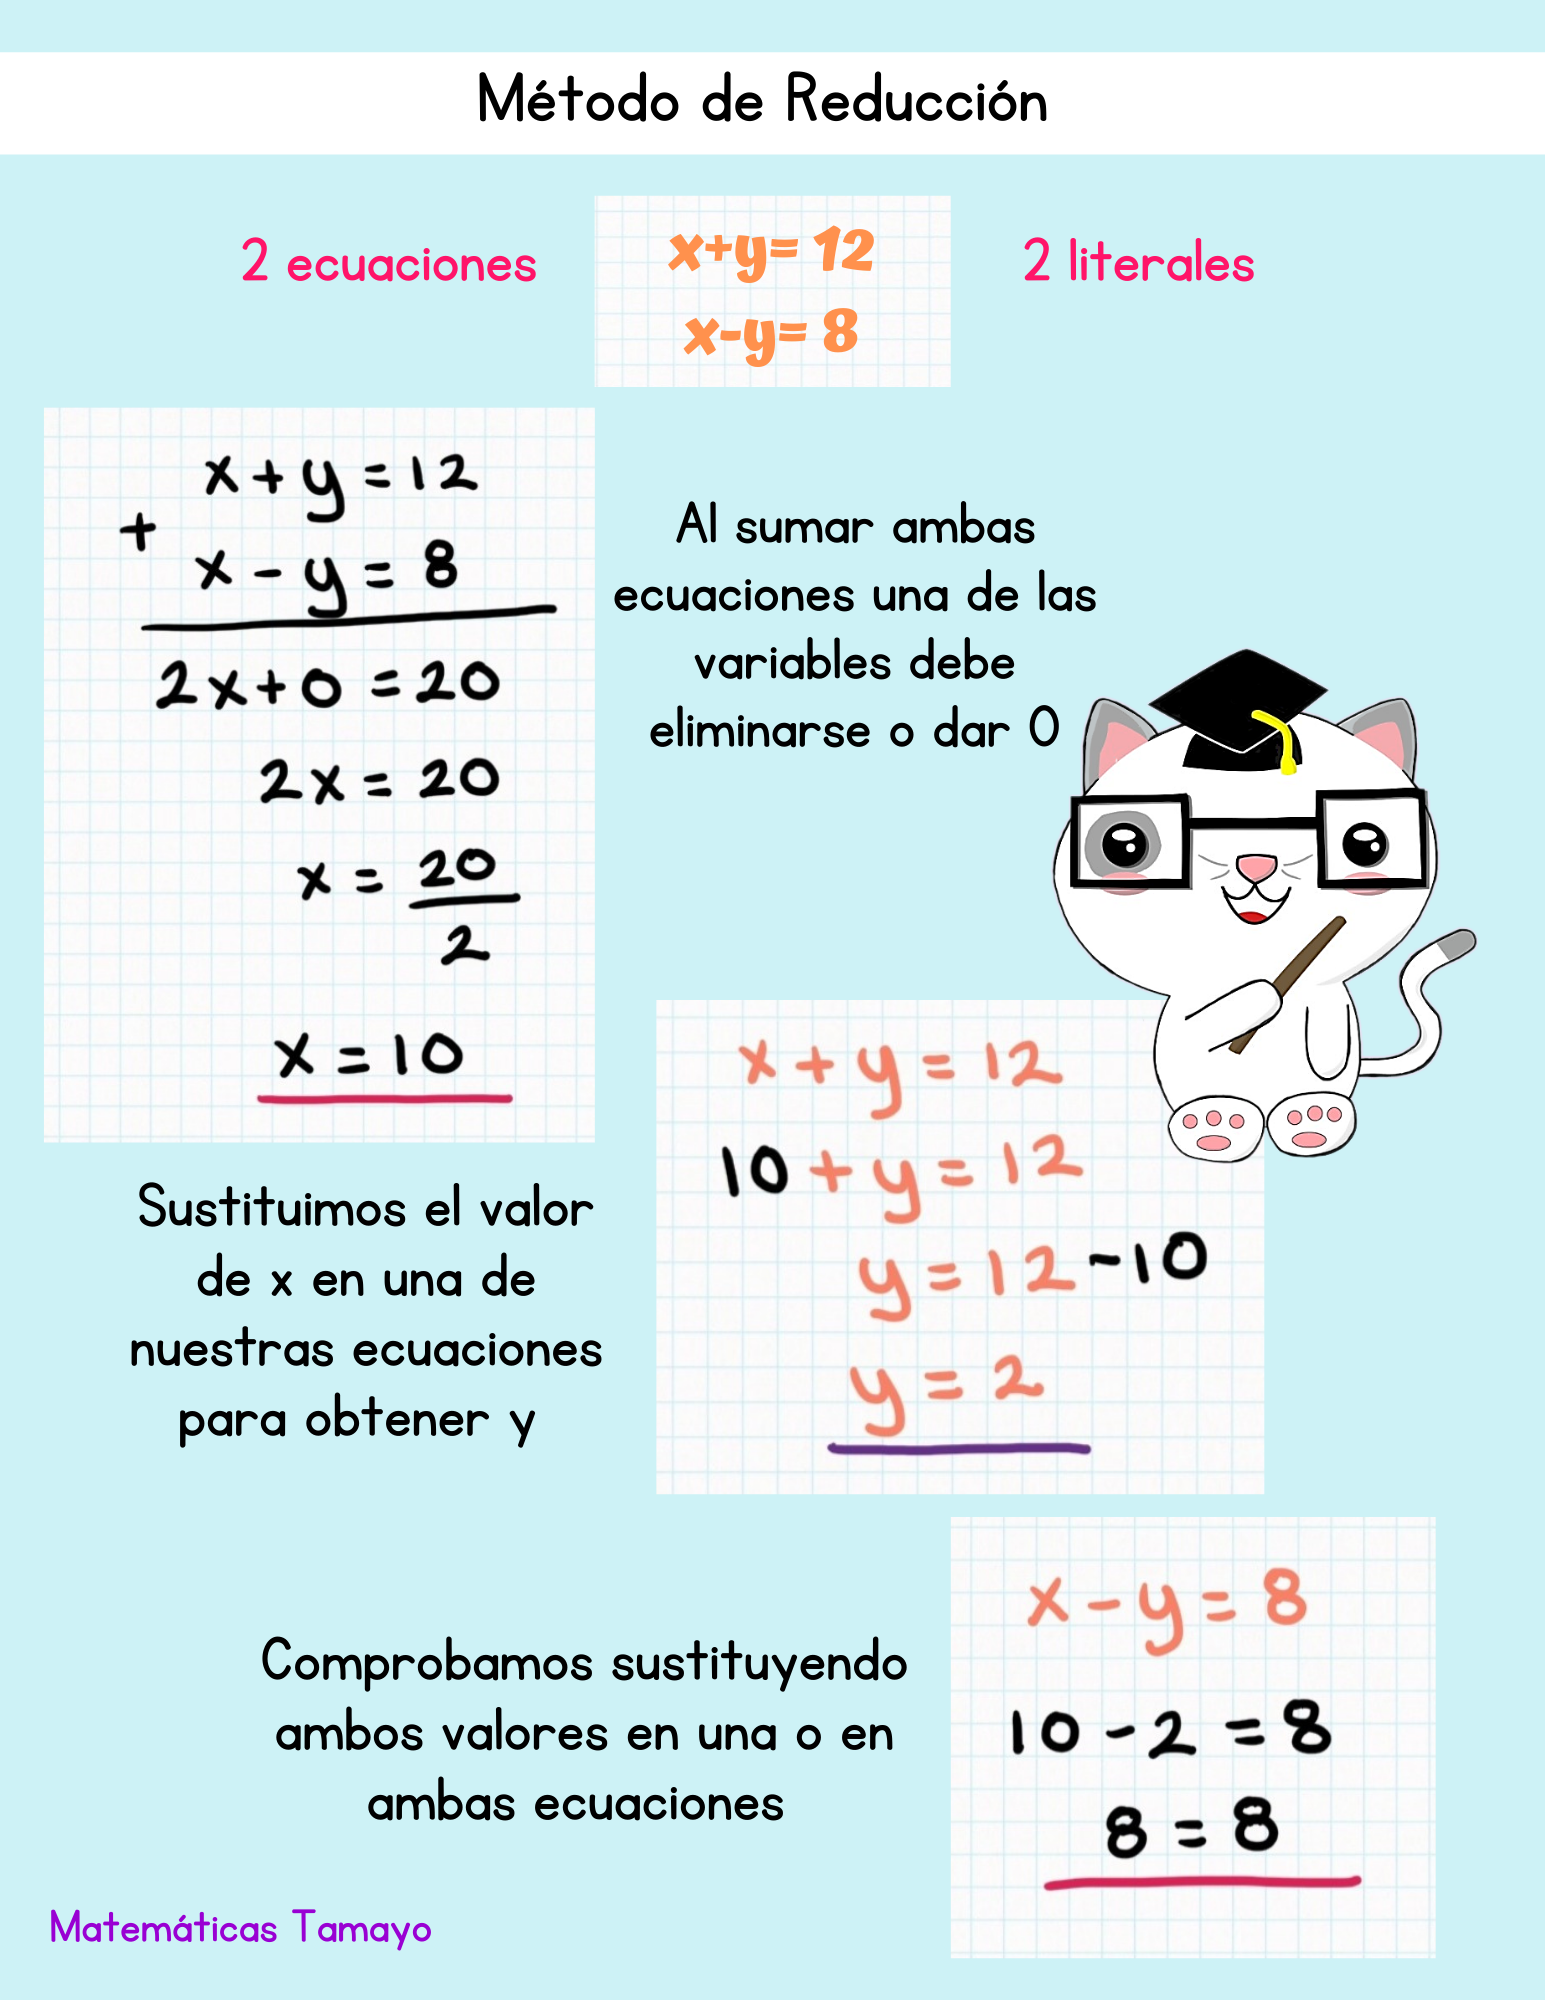 Método de Reducción
2 ecuaciones
x+y= 12
x-y= 8
2 literales
x + y = 12
+
x - y = 8
2x + 0 = 20
2x = 20
x = 20
2
x = 10
Al sumar ambas
ecuaciones una de las
variables debe
eliminarse o dar 0
Sustituimos el valor
de x en una de
nuestras ecuaciones
para obtener y
x + y = 12
10 + y = 12
y = 12 - 10
y = 2
Comprobamos sustituyendo
ambos valores en una o en
ambas ecuaciones
x - y = 8
10 - 2 = 8
8 = 8
Matemáticas Tamayo